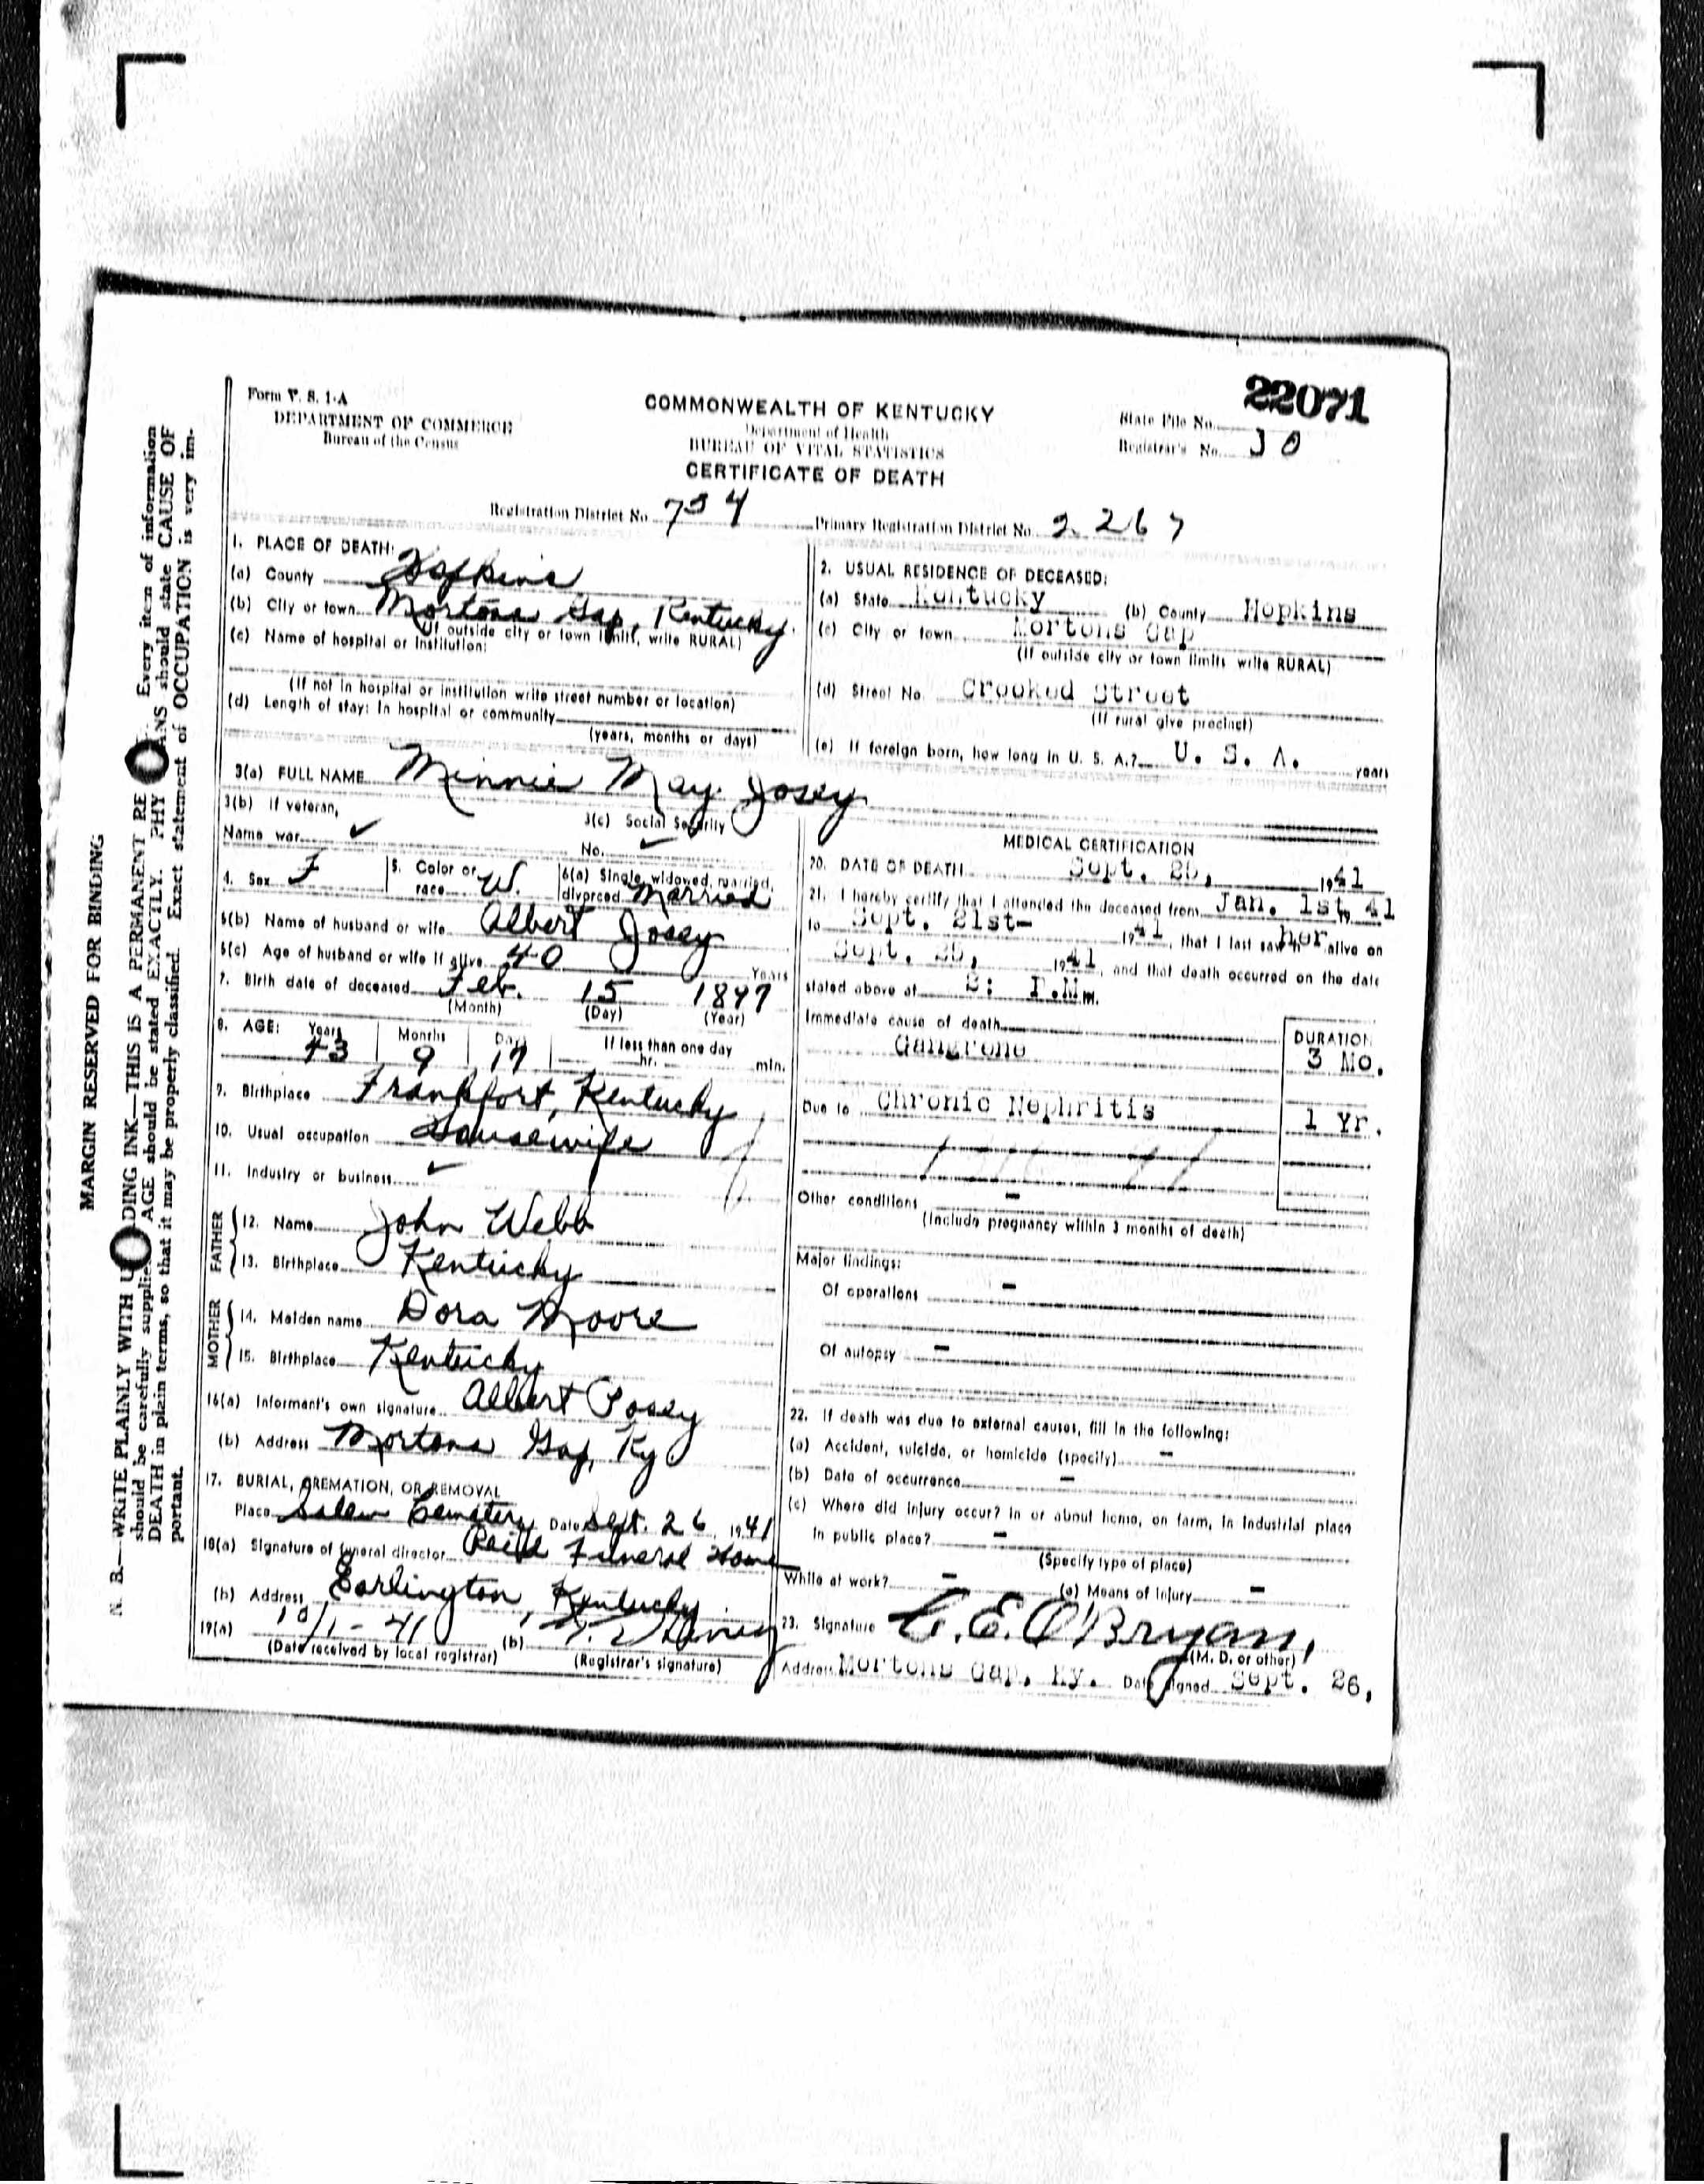 22071
Form V. S. 1-A
DEPARTMENT OF COMMERCE
Bureau of the Census
COMMONWEALTH OF KENTUCKY
Department of Health
BUREAU OF VITAL STATISTICS
CERTIFICATE OF DEATH
State File No.
Registrar's No. 30
Registration District No. 734
Primary Registration District No. 2267
1. PLACE OF DEATH:
(a) County Hopkins
(b) City or town Mortons Gap, Kentucky.
(If outside city or town limits, write RURAL)
(c) Name of hospital or institution:
(If not in hospital or institution write street number or location)
(d) Length of stay: In hospital or community
(years, months or days)
2. USUAL RESIDENCE OF DECEASED:
(a) State Kentucky (b) County Hopkins
(c) City or town Mortons Gap
(If outside city or town limits write RURAL)
(d) Street No. Crooked Street
(If rural give precinct)
(e) If foreign born, how long in U. S. A.? U. S. A. years
3(a) FULL NAME Minnie May Posey
3(b) If veteran,
Name war ✓
3(c) Social Security
No. ✓
4. Sex F
5. Color or race W.
6(a) Single, widowed, married, divorced Married
6(b) Name of husband or wife Albert Posey
6(c) Age of husband or wife if alive 40 Years
7. Birth date of deceased Feb. 15 1897
(Month) (Day) (Year)
8. AGE: Years Months Days If less than one day
43 9 17 hr. min.
9. Birthplace Frankfort, Kentucky
10. Usual occupation Housewife
11. Industry or business ✓
FATHER
12. Name John Webb
13. Birthplace Kentucky
MOTHER
14. Maiden name Dora Moore
15. Birthplace Kentucky
16(a) Informant's own signature Albert Posey
(b) Address Mortons Gap, Ky
17. BURIAL, CREMATION, OR REMOVAL
Place Salem Cemetery Date Sept. 26, 1941
18(a) Signature of funeral director Reid Funeral Home
(b) Address Earlington, Kentucky
19(a) 10/1-41 (b)
(Date received by local registrar) (Registrar's signature)
MEDICAL CERTIFICATION
20. DATE OF DEATH Sept. 25, 1941
21. I hereby certify that I attended the deceased from Jan. 1st 19 41
to Sept. 21st- 1941, that I last saw h her alive on
Sept. 25, 1941, and that death occurred on the date
stated above at 2: P.M. m.
Immediate cause of death
Gangrene
DURATION
3 Mo.
Due to Chronic Nephritis
1 Yr.
Other conditions -
(Include pregnancy within 3 months of death)
Major findings:
Of operations -
Of autopsy -
22. If death was due to external causes, fill in the following:
(a) Accident, suicide, or homicide (specify) -
(b) Date of occurrence -
(c) Where did injury occur? In or about home, on farm, in industrial place
in public place? -
(Specify type of place)
While at work? - (e) Means of Injury -
23. Signature C. E. O'Bryan,
(M. D. or other)
Address Mortons Gap, Ky. Date signed Sept. 26,
MARGIN RESERVED FOR BINDING
N. B.—WRITE PLAINLY WITH U DING INK—THIS IS A PERMANENT RE Every item of information
should be carefully supplied AGE should be stated EXACTLY. PHY ANS should state CAUSE OF
DEATH in plain terms, so that it may be properly classified. Exact statement of OCCUPATION is very im-
portant.